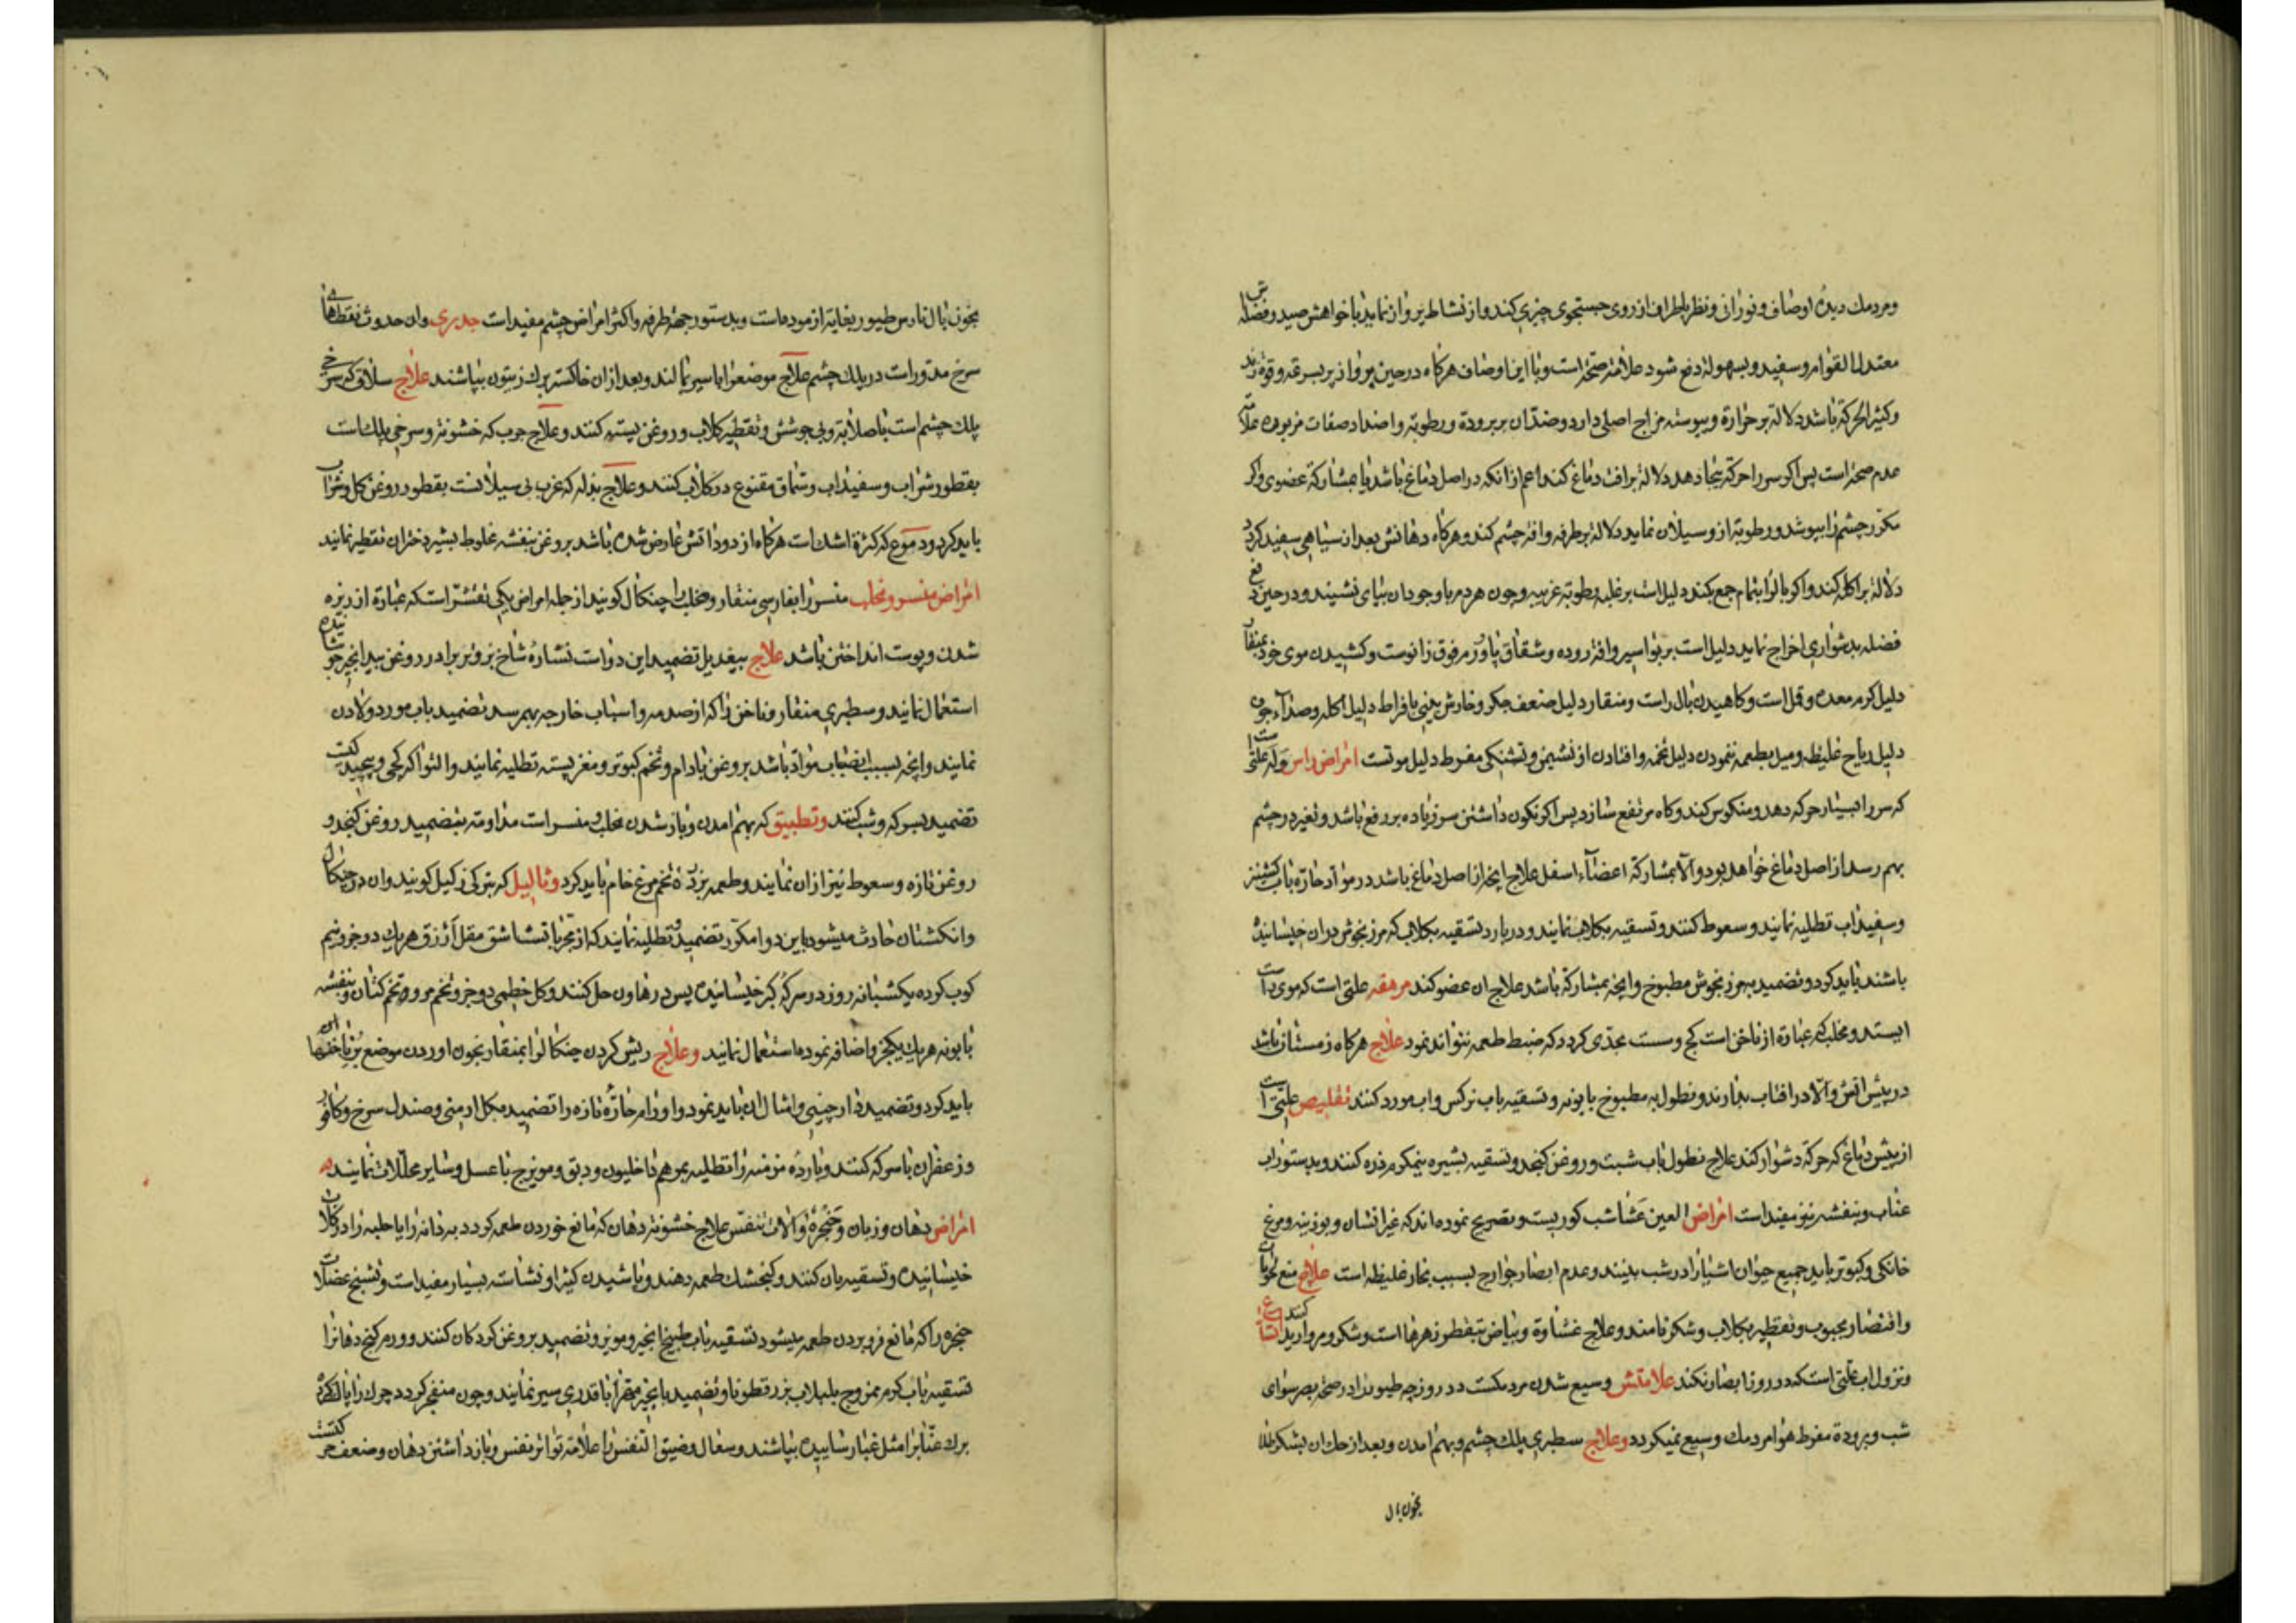 ومردمك ديده اوصاف ونورانى ونظر باطراف از روى جستجوى چيزى كند واز نشاط پرواز نمايد با خواهش صيد وفضله اش
معتدل القوام وسفيد وبسهولة دفع شود علامة صحة است وبا اين اوصاف هركاه درحين پرواز پر بسرعة وقوة زند
وكثير الحركة باشد دلالة بر حرارة ويبوسته مزاج اصلى دارد وضد آن بر برودة ورطوبة واضداد صفات مزبوره علامة
عدم صحة است پس اكر سر را حركة بيجا دهد دلالة بر افت دماغ كند اعم از انكه در اصل دماغ باشد يا بمشاركة عضوى واكر
مكرر چشم را بپوشد ورطوبة از و سيلان نمايد دلالة بر طرفه وافة چشم كند وهركاه دهانش بعد از سياهى سفيد كردد
دلالة بر اكله كند واكر بال را بتمام جمع كند دليل است بر غلبه رطوبة غريبه وچون هردم با وجود ان بپاى نشيند ودرحين دفع
فضله بدشوارى اخراج نمايد دليل است بر بواسير وافة روده وشقاق پا وورم فوق زانوست وكشيدن موى خود بمنقار
دليل كرم معده وقمل است وكاهيدن بال راست ومنقار دليل ضعف جكر وخارش بينى بافراط دليل اكله وصداء جوف
دليل رياح غليظه وميل بطعمه ننمودن دليل تخمه وافتادن از نشيمن وتشنكى مفرط دليل موتست امراض راس وله علتى است
كه سر را بسيار حركه دهد ومنكوس كند وكاه مرتفع سازد پس اكر نكون داشتن سر زياده بر رفع باشد وتغير در چشم
بهم رسد از اصل دماغ خواهد بود والا بمشاركة اعضاء اسفل علاج انچه از اصل دماغ باشد در مواد حاره باب كشنيز
وسفيداب تطليه نمايند وسعوط كنند وتسقيه بكلاب نمايند ودر بارد تسقيه بكلاب كه مرزنجوش دران خيسانيده
باشند بايد كرد وتضميد بمرزنجوش مطبوخ وانچه بمشاركة باشد علاج ان عضو كنند مرهقه علتى است كه موى راست
ايستد ومخلب كه عبارة از ناخن است كج وسست بحدى كردد كه ضبط طعمه نتواند نمود علاج هركاه زمستان باشد
در پيش اتش والا در افتاب بدارند ونطول به مطبوخ بابونه وتسقيه باب نركس واب مورد كنند تقليص علتى است
از پيش دماغ كه حركة دشوار كند علاج نطول باب شبت وروغن كنجد وتسقيه بشيره نيمكرم نره كنند وبدستور اب
عناب وبنفشه نيز مفيد است امراض العين عشا شب كوريست وتصريح نموده اند كه غير انسان وبوزينه ومرغ
خانكى وكبوتر بايد جميع حيوان اشيا را در شب بينند وعدم ابصار جوارح بسبب بخار غليظه است علاج منع حيوبات
واقتصار بحبوب وتقطير بكلاب وشكر نامند وعلاج غشاوة وبياض بتقطور زهرها است وشكر ومرواريد كنند اتساع
ونزول اب علتى است كه در روز ابصار نكند علامتش وسيع شدن مردمكست در روز چه طيور را در صحة بصر سواى
شب وبرودة مفرط هوا مردمك وسيع نميكردد وعلاج سطبرى پلك چشم وبهم امدن وبعد از حك ان بشكر طلا
بخون بال
بخون بال نارس طيور بغاية ازموده است وبدستور جهة طرفه واكثر امراض چشم مفيد است جدرى وان حدوث نقطهاى
سرخ مدور است در پلك چشم علاج موضع را با سير بمالند وبعد از ان خاكستر برك زيتون بپاشند علاج سلاق كه سرخى
پلك چشم است با صلابة وبى جوشش وتقطير كلاب وروغن پسته كنند وعلاج جرب كه خشونة وسرخى پلك است
بقطور شراب وسفيداب وسماق منقوع در كلاب كنند وعلاج بذله كه غرب بى سيلانست بقطور روغن كل وشراب
بايد كرد ودموع كه كثرة اشك است هركاه از دود اتش عارض شده باشد بروغن بنفشه مخلوط بشير دختران تقطير نمايند
امراض منسر ومخلب منسر را بفارسى منقار ومخلب را چنكال كويند از جمله امراض يكى تقشر است كه عبارة از ريزه
شدن وپوست انداختن باشد علاج بيعديل تضميد اين دواست نشاره شاخ بز وبزبر در روغن بيد انجير جوشانيده
استعمال نمايند وسطبرى منقار وناخن را كه از صدمه واسباب خارجه بهم رسد تضميد باب مورد ولادن
نمايند وانچه بسبب انصباب مواد باشد بروغن بادام وتخم كبوتر ومغز پسته تطليه نمايند والتوا كه كجى وپيچيدكيست
تضميد بسركه وشب كنند وتطبيق كه بهم امدن وباز نشدن مخلب ومنسر است مداومة بتضميد روغن كنجد و
روغن تازه وسعوط نيز از ان نمايند وطعمه بزرده تخم مرغ خام بايد كرد وثاليل كه بتركى زكيل كويند وان در چنكال
وانكشتان حادث ميشود باين دوا مكرر تضميد وتطليه نمايند كه از مجرباتست اشق مقل ازرق هر يك دو جزو نيم
كوب كرده يكشبانه روز در سركه كهنه خيسانيده پس در هاون حل كنند وكل خطمى دو جزو تخم مرو وتخم كتان وبنفشه
بابونه هر يك يكجزو اضافه نموده استعمال نمايند وعلاج ريش كردن چنكال را بمنقار بخون اوردن موضع بريدن ناخنها
بايد كرد وتضميد دارچينى وامثال ان بايد نمود واورام حاره تازه را تضميد بكل ارمنى وصندل سرخ وكافور
وزعفران با سركه كنند وبارده مزمنه را تطليه بمرهم داخليون ودبق ومويزج با عسل وساير محللات نمايند
امراض دهان وزبان وحنجره والات تنفس علاج خشونة دهان كه مانع خوردن طعمه كردد بهدانه را يا حلبه را در كلاب
خيسانيده وتسقيه بان كنند وكنجشك طعمه دهند وپاشيدن كتيرا ونشاسته بسيار مفيد است وتشنج عضلات
حنجره را كه مانع فروبردن طعمه ميشود تسقيه باب طبيخ انجير ومويز وتضميد بروغن كردكان كنند وورم كنج دهان را
تسقيه باب كرم ممزوج بلبلاب بزر قطونا وتضميد بانجير مقشر با قدرى سير نمايند وچون منفجر كردد چرك را پاك كرده
برك عناب را مثل غبار ساييده بپاشند وسعال وضيق النفس را علامة تواتر نفس وباز داشتن دهان وضعف حركتست